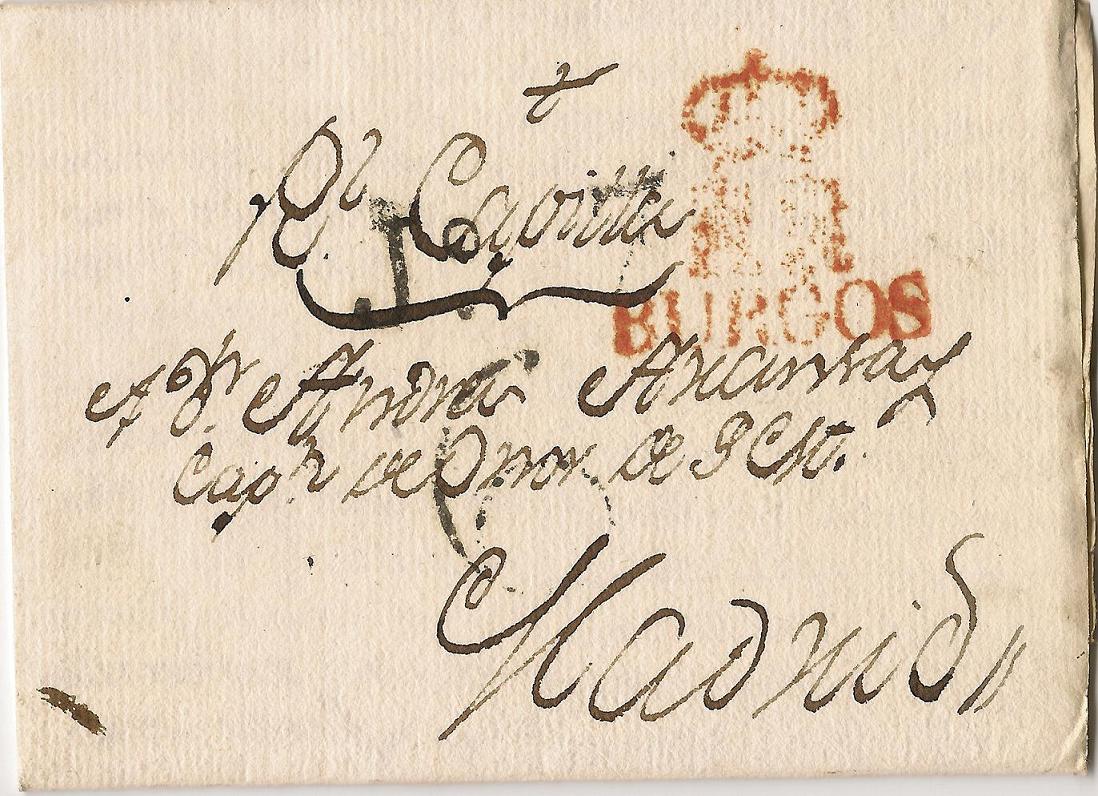 Rl Capilla
BURGOS
A Dn Andres
Capn de Onor de S.M.
Madrid